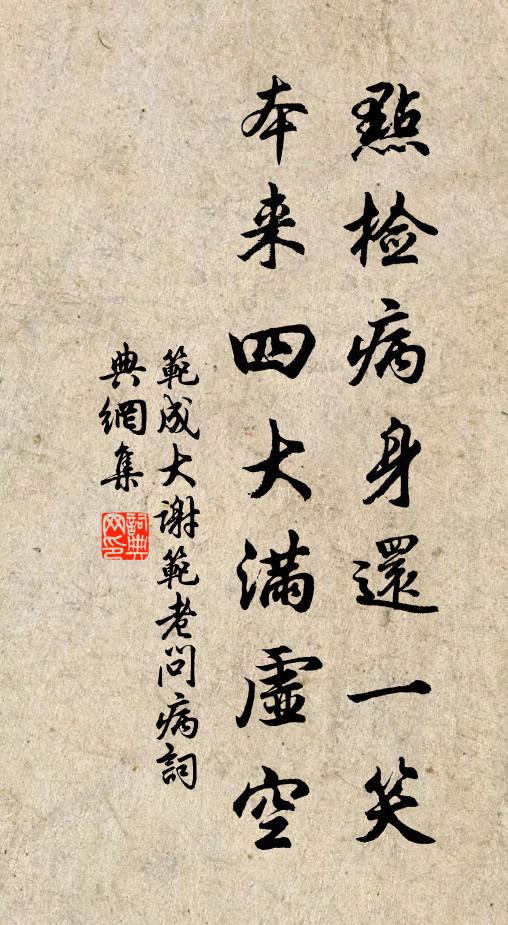 點檢病身還一笑
本来四大滿虛空
範成大謝範老問病詞
典網集
詞典网印